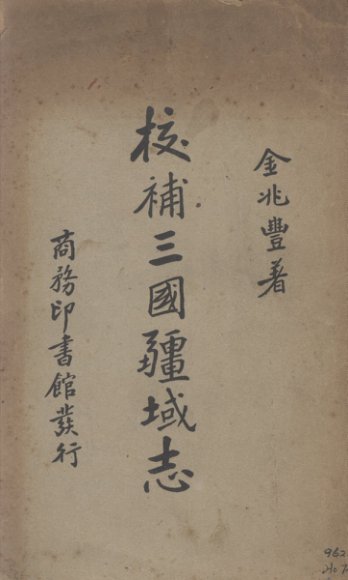 金兆豐著
校補三國疆域志
商務印書館發行
962